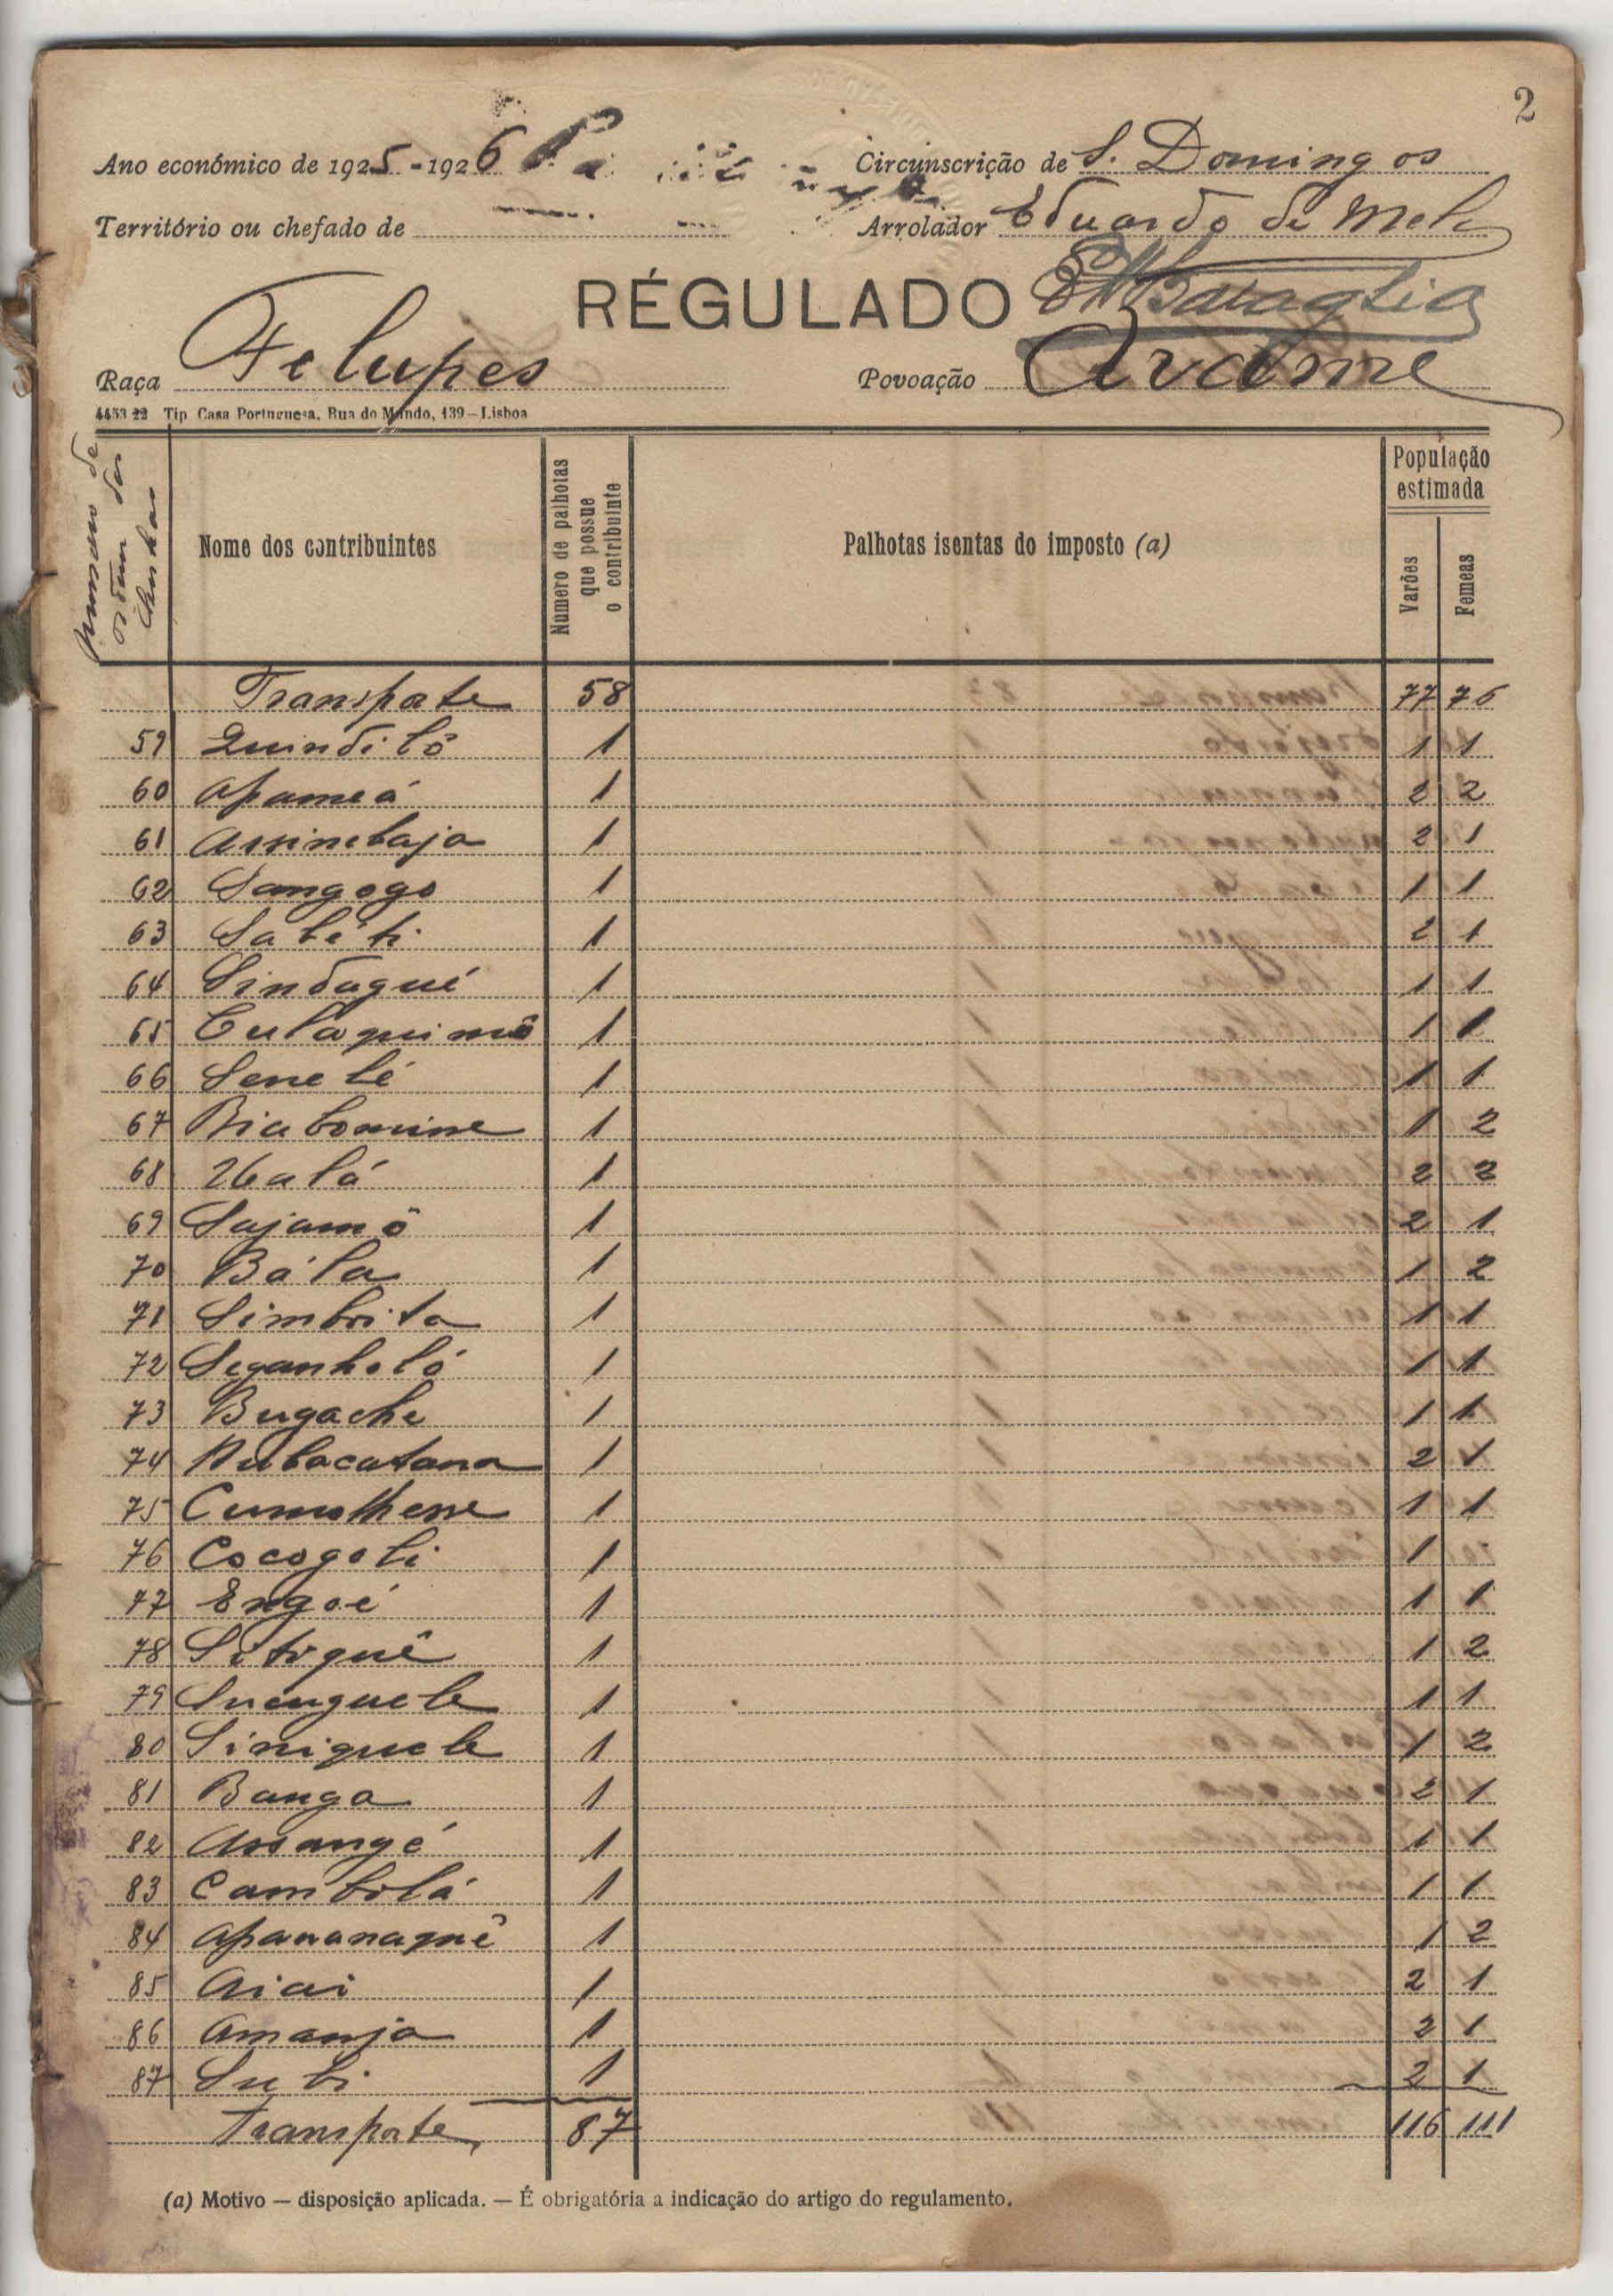 2
Ano económico de 1925-1926 Circunscrição de S. Domingos
Território ou chefado de Arrolador Eduardo de Melo
RÉGULADO
Raça Felupes Povoação Arame
4453 22 Tip. Casa Portuguesa, Rua do Mundo, 139—Lisboa
numero de ordem das chapas
Nome dos contribuintes
Numero de palhotas que possue o contribuinte
Palhotas isentas do imposto (a)
População estimada
Varões
Femeas
Transporte 58 77 76
59 Quindiló 1 1 1
60 Apameá 1 2 2
61 Assinebaja 1 2 1
62 Sangogo 1 1 1
63 Sabéti 1 2 1
64 Sindagué 1 1 1
65 Culaquimô 1 1 1
66 Senelé 1 1 1
67 Biabomine 1 1 2
68 Ualá 1 2 2
69 Sajamô 1 2 1
70 Bála 1 1 2
71 Simbrita 1 1 1
72 Seganholó 1 1 1
73 Bugache 1 1 1
74 1 2 1
75 1 1 1
76 Cocogoli 1 1 -
77 Engoé 1 1 1
78 Sitiguê 1 1 2
79 1 1 1
80 Siniguele 1 1 2
81 Banga 1 2 1
82 Assangé 1 1 1
83 Cambolá 1 1 1
84 Apananaguê 1 1 2
85 Aiai 1 2 1
86 Amanja 1 2 1
87 Subi 1 2 1
Transporte 87 116 111
(a) Motivo — disposição aplicada. — É obrigatória a indicação do artigo do regulamento.